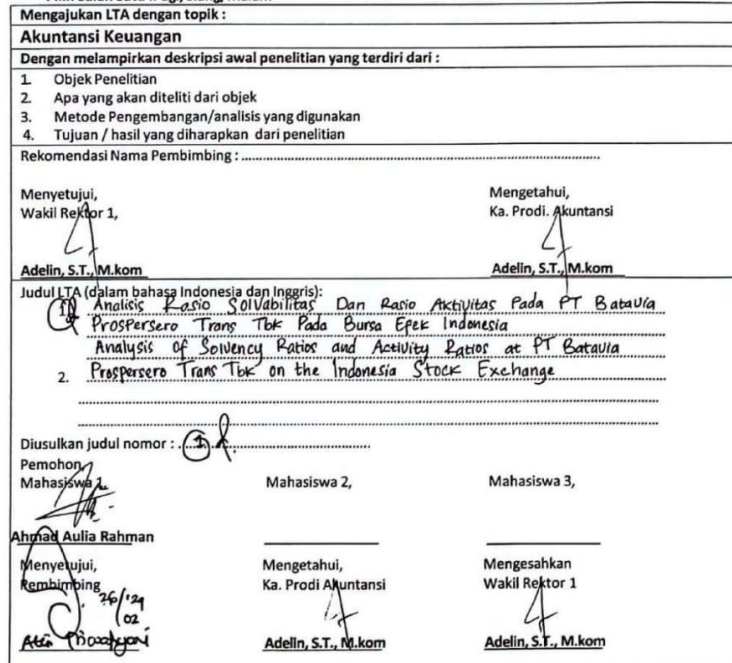 Mengajukan LTA dengan topik :
Akuntansi Keuangan
Dengan melampirkan deskripsi awal penelitian yang terdiri dari :
1. Objek Penelitian
2. Apa yang akan diteliti dari objek
3. Metode Pengembangan/analisis yang digunakan
4. Tujuan / hasil yang diharapkan dari penelitian
Rekomendasi Nama Pembimbing :
Menyetujui, Mengetahui,
Wakil Rektor 1, Ka. Prodi. Akuntansi
Adelin, S.T., M.kom Adelin, S.T., M.kom
Judul LTA (dalam bahasa Indonesia dan Inggris):
1. Analisis Rasio Solvabilitas Dan Rasio Aktivitas Pada PT Batavia
Prospersero Trans Tbk Pada Bursa Efek Indonesia
Analysis of Solvency Ratios and Activity Ratios at PT Batavia
2. Prospersero Trans Tbk on the Indonesia Stock Exchange
Diusulkan judul nomor : 1
Pemohon,
Mahasiswa 1, Mahasiswa 2, Mahasiswa 3,
Ahmad Aulia Rahman
Menyetujui, Mengetahui, Mengesahkan
Pembimbing Ka. Prodi Akuntansi Wakil Rektor 1
26/02 '24
Adelin, S.T., M.kom Adelin, S.T., M.kom